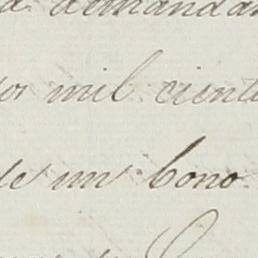 a demandan
os mil cient
de un bono